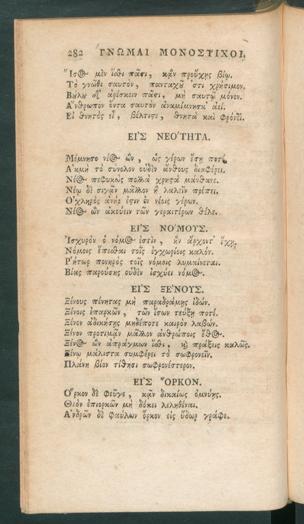 282 ΓΝΩΜΑΙ ΜΟΝΟΣΤΙΧΟΙ,
Ἴσος μὲν ἴσθι πᾶσι, κᾂν προὔχης βίῳ.
Τὸ γνῶθι σαυτὸν, πανταχοῦ στι χρήσιμον.
Βούλου δ' ἀρέσκειν πᾶσι, μὴ σαυτῷ μόνον.
Ἄνθρωπον ὄντα σαυτὸν ἀναμίμνησκ' ἀεί.
Εἰ θνητὸς εἶ, βέλτιστε, θνητὰ καὶ φρόνει.
ΕΙΣ ΝΕΟΤΗΤΑ.
Μέμνησο νέος ὢν, ὡς γέρων ἔσῃ ποτέ.
Ἀκμὴ τὸ σύνολον οὐδὲν ἄνθους διαφέρει.
Νέος πεφυκὼς πολλὰ χρηστὰ μάνθανε.
Νέῳ δὲ σιγᾶν μᾶλλον ἢ λαλεῖν πρέπει.
Ὀχληρὸς ἀνὴρ ἐστιν ἐν νέοις γέρων.
Νέος ὢν ἀκούειν τῶν γεραιτέρων θέλε.
ΕΙΣ ΝΟΜΟΥΣ.
Ἰσχυρὸν ὁ νόμος ἐστὶν, ἢν ἄρχοντ' ἔχῃ.
Νόμοις ἕπεσθαι τοῖς ἐγχωρίοις καλόν.
Ῥήτωρ πονηρὸς τοὺς νόμους λυμαίνεται.
Βίας παρούσης οὐδὲν ἰσχύει νόμος.
ΕΙΣ ΞΕΝΟΥΣ.
Ξένους πένητας μὴ παραδράμῃς ἰδών.
Ξένοις ἐπαρκῶν, τῶν ἴσων τεύξῃ ποτέ.
Ξένον ἀδικήσῃς μηδέποτε καιρὸν λαβών.
Ξένον προτιμᾶν μᾶλλον ἀνθρώποις ἔθος.
Ξένος ὢν ἀπράγμων ἴσθι, καὶ πράξεις καλῶς.
Ξένῳ μάλιστα συμφέρει τὸ σωφρονεῖν.
Πλάνη βίον τίθησι σωφρονέστερον.
ΕΙΣ ὍΡΚΟΝ.
Ὅρκον δὲ φεῦγε, κᾂν δικαίως ὀμνύῃς.
Θεὸν ἐπιορκῶν μὴ δόκει λεληθέναι.
Ἀνδρῶν δὲ φαύλων ὅρκον εἰς ὕδωρ γράφε.